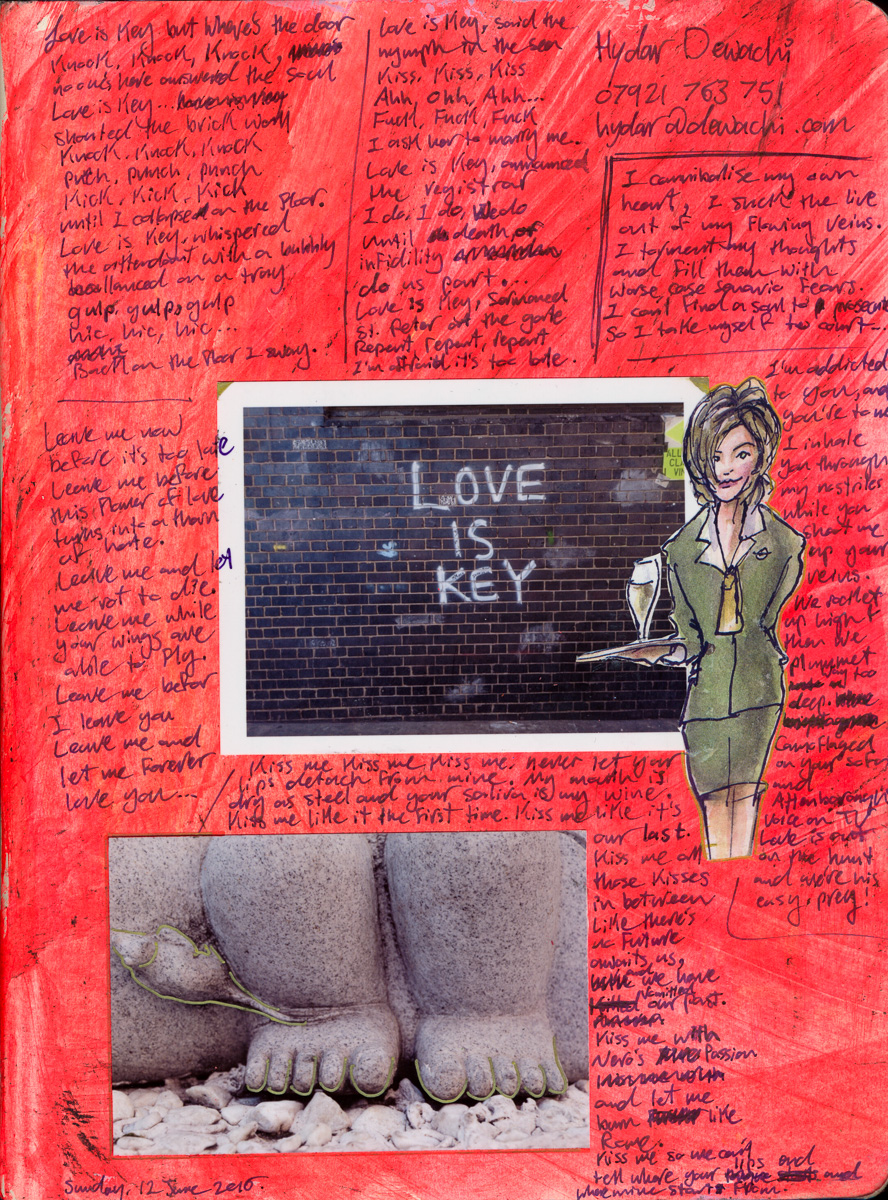 Love is Key but Where's the door
Knock, Knock, Knock,
no one's here answered the soul
Love is Key...
shouted the brick work
Knock, Knock, Knock
punch, punch, punch
Kick, Kick, Kick
until I collapsed on the floor.
Love is Key, whispered
the attendant with a bubbly
ballanced on a tray
gulp, gulp, gulp
hic, hic, hic...
Back on the floor I sway.
Love is Key, said the
nymph in the sea
Kiss, Kiss, Kiss
Ahh, Ohh, Ahh...
Fuck, Fuck, Fuck
I ask her to marry me..
Love is Key, announced
the registrar
I do, I do, We do
Until death or
infidility
do us part...
Love is Key,
St. Peter at the gate
Repart, repart, repart
I'm afraid it's too late.
Hydar Dewachi
07921 763 751
hydar@dewachi.com
I cannibalise my own
heart, I suck the live
out of my flowing veins.
I torment my thoughts
and fill them with
worse case senario fears.
I can't find a soul to prosecute
So I take myself to court...
Leave me now
before it's too late
Leave me before
this flower of love
turns into a thorn
of hate.
Leave me and let
me rot to die.
Leave me while
your wings are
able to fly.
Leave me befor
I leave you
Leave me and
let me forever
love you...
LOVE
IS
KEY
ALL
CLA
VIN
I'm addicted
to you, and
you're to me
I inhale
you through
my nostriles
while you
shoot me
up your
veins.
We rocket
up hight
then we
plummet
way too
deep.
Camoflaged
on your sofa
and
Attenborough
voice on TV
Love is out
on the hunt
and we're his
easy prey!
Kiss me Kiss me Kiss me. never let your
lips detach from mine. My mouth is
dry as steel and your saliva is my wine.
Kiss me like it the first time. Kiss me like it's
our last.
Kiss me all
those Kisses
in between
Like there's
no future
awaits us,
and we have
vomitted our past.
Kiss me with
Nero's Passion
and let me
burn like
Rome.
Kiss me so we can't
tell where your lips end and
where mine starts from.
Sunday, 12 June 2016.